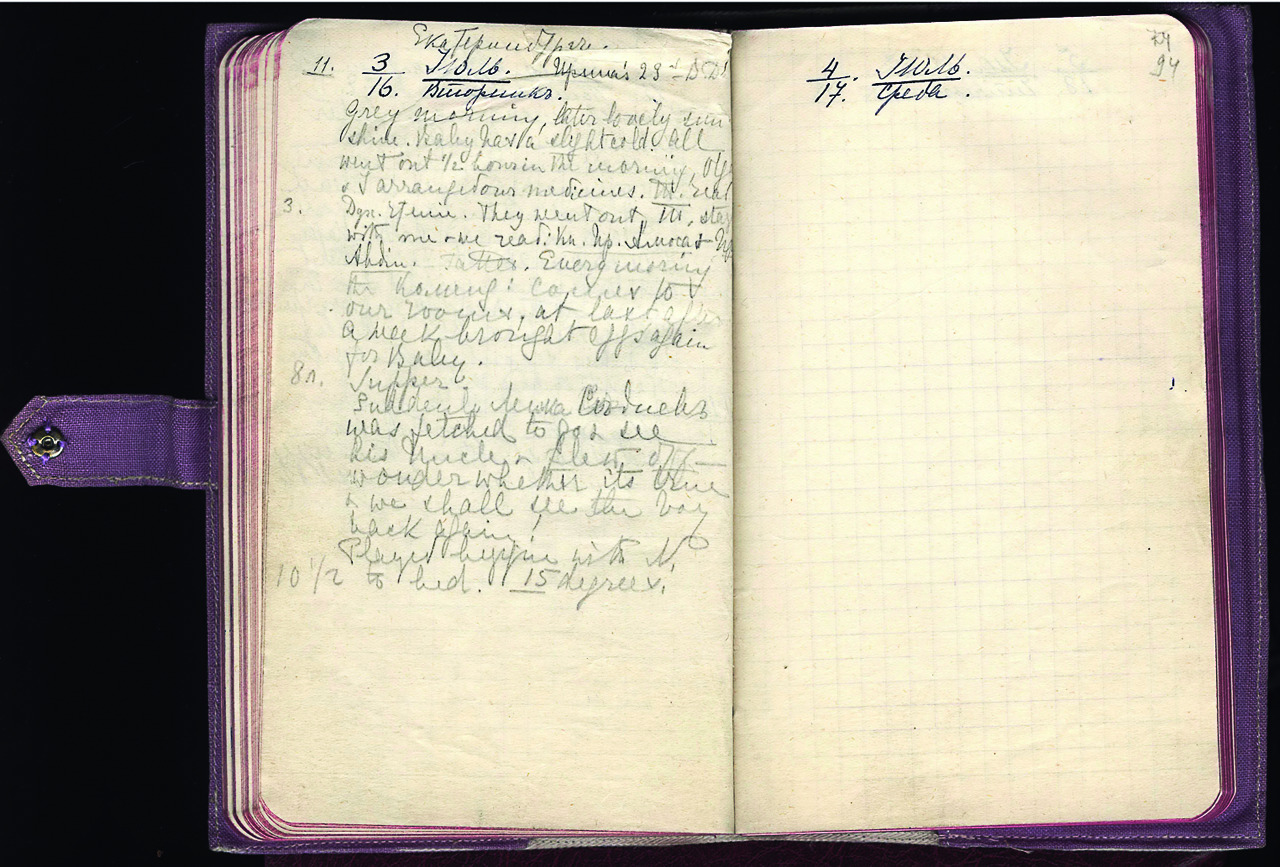 Екатеринбург.
11. 3/16. Июль. Вторникъ. Ирина's 23rd B.D.
Grey morning, later lovely sun
shine. Baby has a slight cold. All
went out ½ hour in the morning, Olga
& I arranged our medicines. T. read
3. Дух. чтение. They went out, T. stay
with me & we read: Кн. Пр. Амоса &
Авдия. Tatted. Every morning
the Komend: comes to
our rooms, at last after
a week brought eggs again
for Baby.
8ч. Supper.
Suddenly Лёнка Седневъ
was fetched to go & see
his Uncle & flew off—
wonder whether its true
& we shall see the boy
back again!
Played bezique with N.
10½ to bed. 15 degrees.
4/17. Июль. Среда.
94